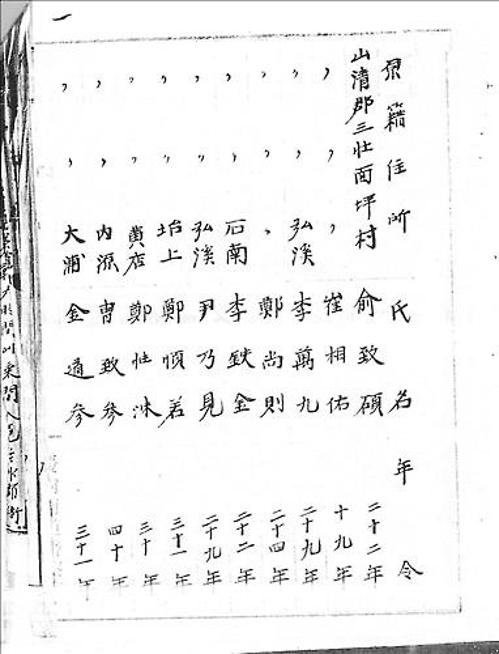 一
原籍住所 氏名 年令
山清郡三壮面坪村 俞致碩 二十二年
〃 〃 〃 崔相佑 十九年
〃 〃 弘溪 李萬九 二十九年
〃 〃 〃 鄭尚則 二十四年
〃 〃 石南 李鉄金 二十二年
〃 〃 弘溪 尹乃見 二十九年
〃 〃 坮上 鄭順若 三十一年
〃 〃 黄店 鄭性洙 三十年
〃 〃 內源 曹致参 四十年
〃 〃 大浦 金道参 三十一年